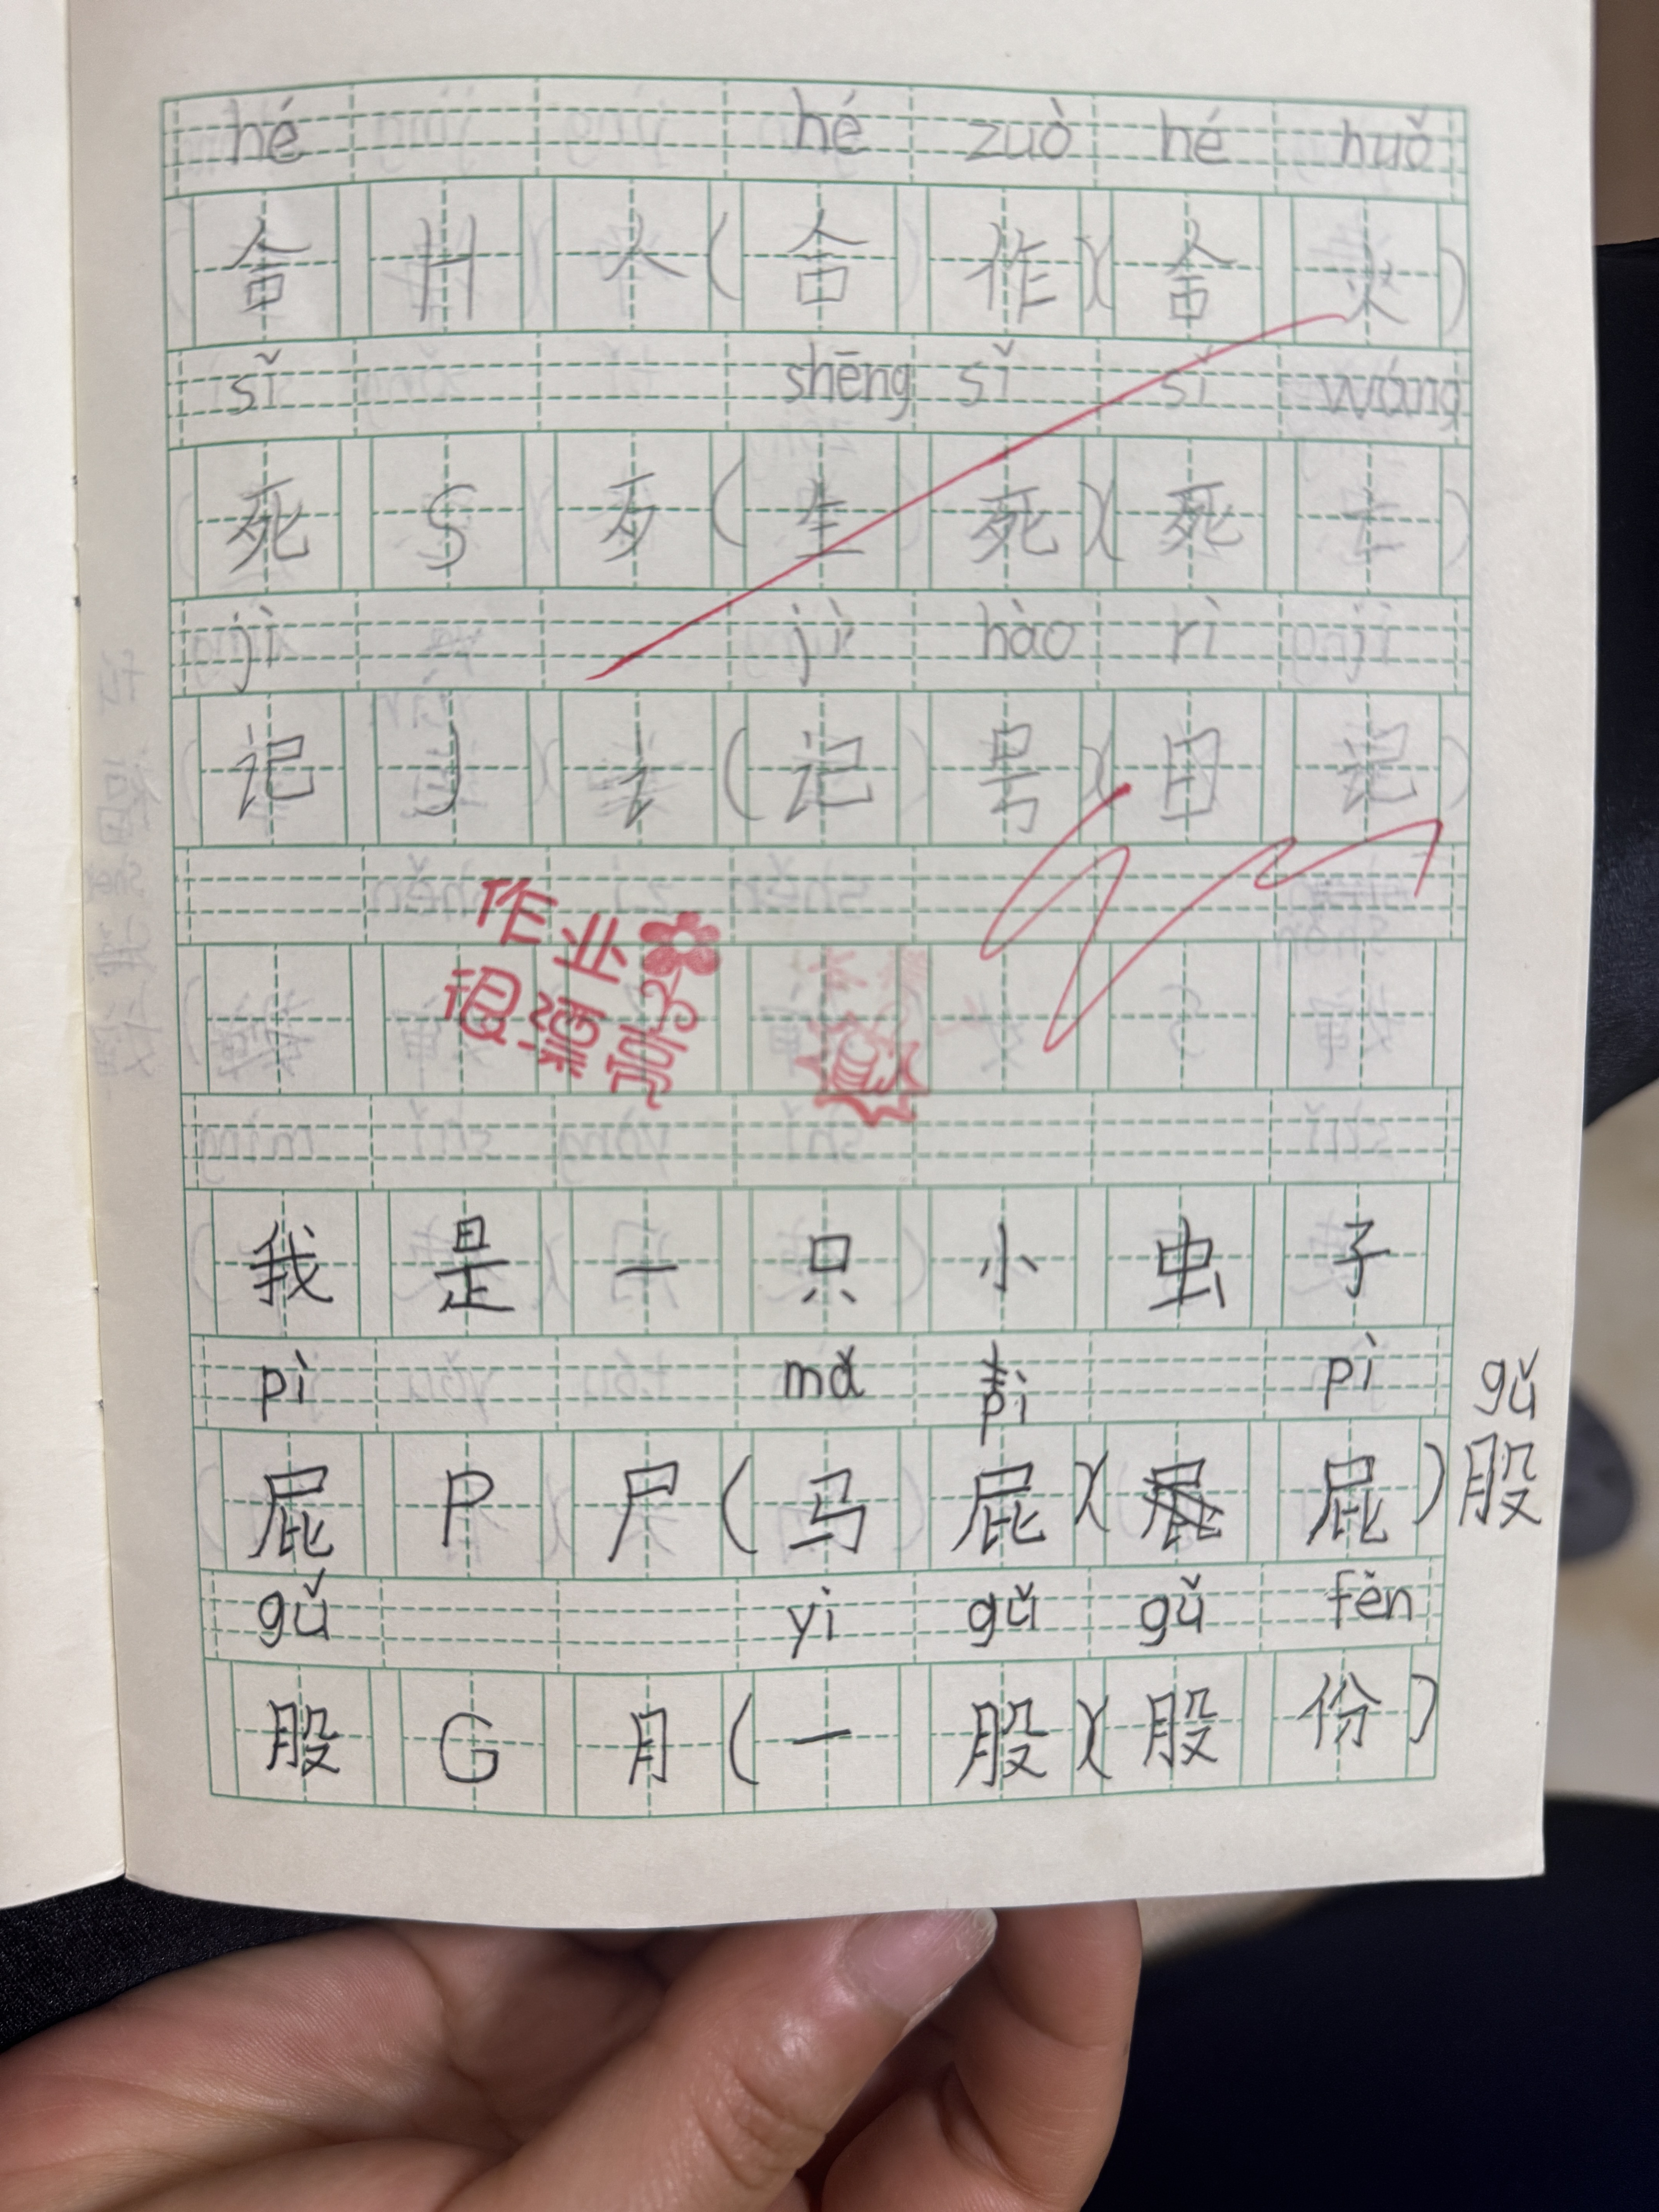 hé hé zuò hé huǒ
合 H 人 (合 作)(合 火)
sǐ shēng sǐ sǐ wáng
死 S 歹 (生 死)(死 亡)
jì jì hào rì jì
记 J 讠 (记 号)(日 记)
作业
很漂亮
我 是 一 只 小 虫 子
pì mǎ pì pì gǔ
屁 P 尸 (马 屁)(屁) 股
gǔ yì gǔ gǔ fèn
股 G 月 (一 股)(股 份)